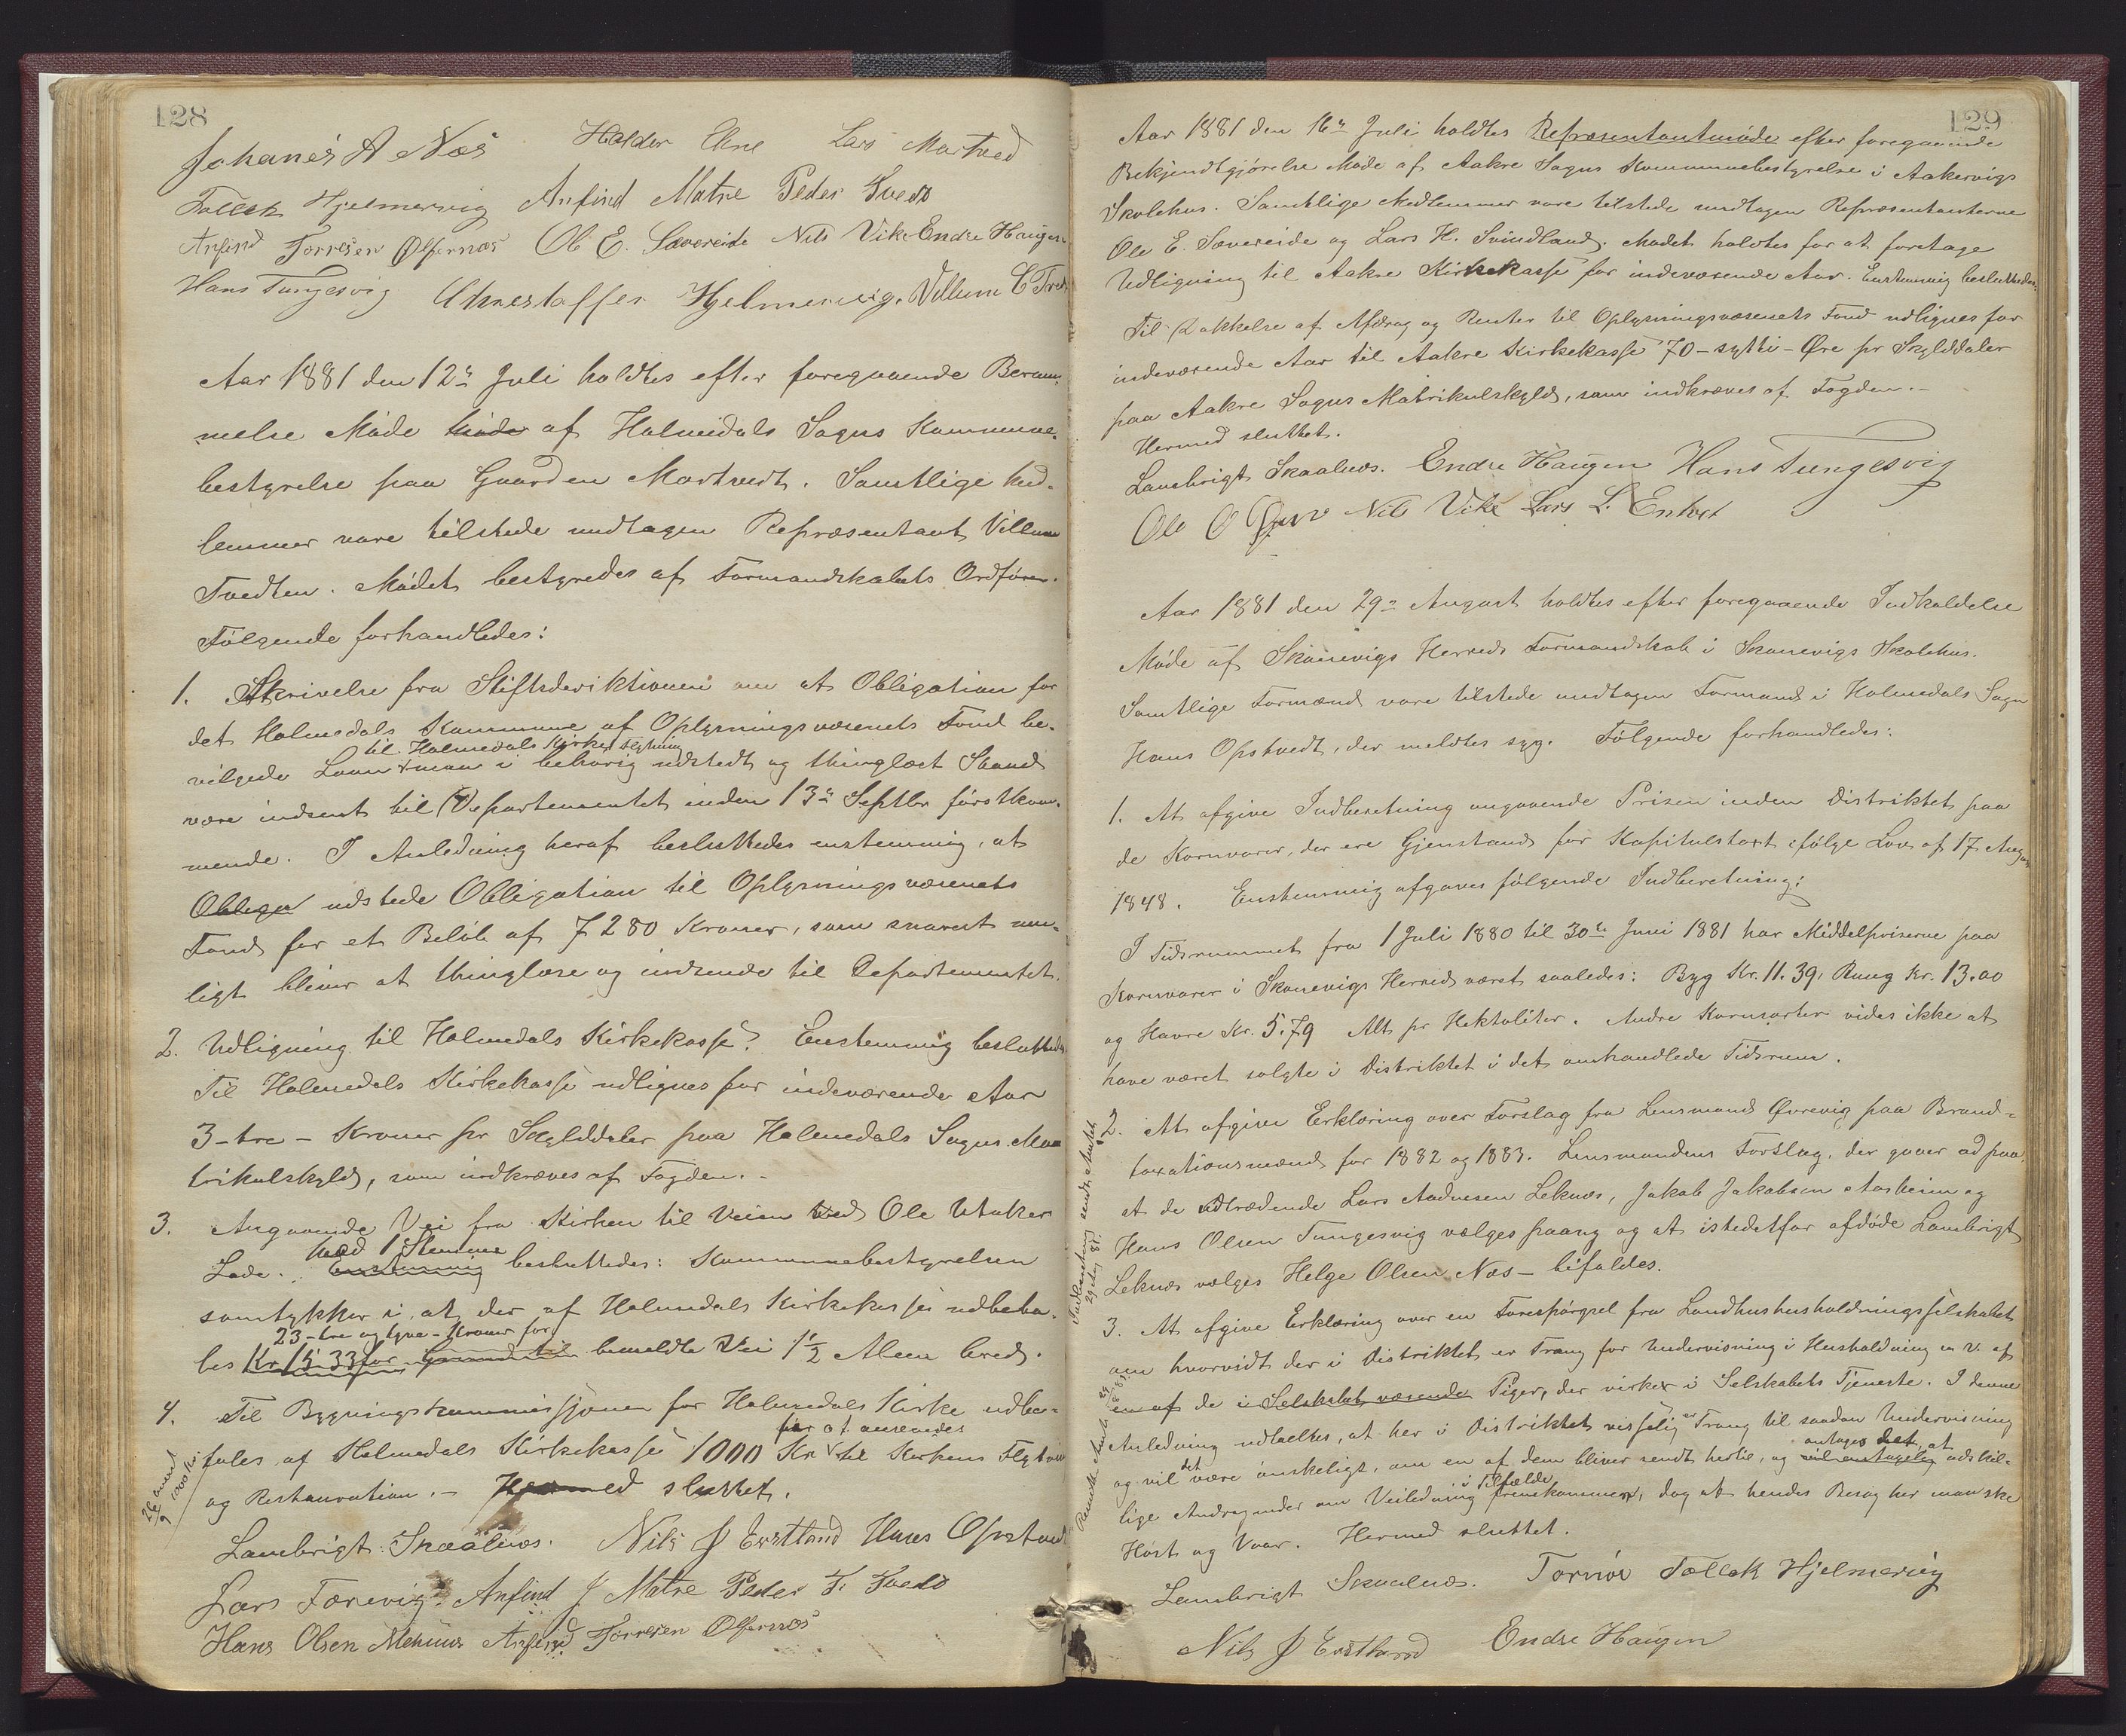 128
Johanes A Næs Haldor Ebne Lars Martved
Tollek Hjelmervig Anfind Matre Peder Tvedt
Anfind Torresen Ølfernæs Ole E. Sævereide Nils Vike Endre Haugen
Hans Tungesvig Christoffer Hjelmervig. Villum E Tved
Aar 1881 den 12te Juli holdtes efter foregaaende Beram-
melse Møde Møde af Holmedals Sogns Kommune-
bestyrelse paa Gaarden Martvedt. Samtlige Med-
lemmer vare tilstede undtagen Repræsentant Villum
Tvedten. Mødet bestyredes af Formandskabets Ordfører.
Følgende forhandledes:
1. Skrivelse fra Stiftsderiktionen om at Obligation for
det Holmedals Kommune af Oplysningsvæsenets Fond be-
til Holmedals Kirkes Flytning
vilgede Laan man i behørig udstedt og thinglæst Stand
være indsent til Departementet inden 13de Septbr førstkom-
mende. I Anledning heraf besluttedes enstemmig, at
Obligas udstede Obligation til Oplysningsvæsenets
Fond for et Beløb af 7280 Kroner, som snarest mu-
ligt bliver at thinglæse og indsende til Departementet.
2. Udligning til Holmedals Kirkekasse? Enstemmig besluttedes
Til Holmedals Kirkekasse udlignes for indeværende Aar
3-tre- Kroner pr Skylddaler paa Holmedals Sogns Ma-
trikulskyld, som indkræves af Fogden.-
3. Angaaende Vei fra Kirken til Veien ved Ole Utaker
mod 1 Stemme
Lade. Enstemmig besluttedes: Kommunebestyrelsen
samtykker i, at der af Holmedals Kirkekasse udbeta-
23-tre og tyve-Kroner for
les Kr 15 33 for Grund til bemeldte Vei 1½ Alen bred.
4. Til Bygningskommissjonen for Holmedals Kirke udbe-
for at anvendes
tales af Holmedals Kirkekasse 1000 Kr til Kirkens Flytning
26/9 anvist 1000 Kr
og Restauration.- Hermed sluttet.
Lambrigt Skaalnæs. Nils J Erstland Hans Opstved
Lars Færevig. Anfind J Matre Peder T. Tvedt
Hans Olsen Mehuus Anfind Torresen Ølfernæs
129
Aar 1881 den 16de Juli holdtes Repræsentantmøde efter foregaaende
Bekjendtgjørelse Møde af Aakre Sogns Kommunebestyrelse i Aakervigs
Skolehus. Samtlige Medlemmer vare tilstede undtagen Repræsentanterne
Ole E. Sævereide og Lars H. Svindland. Mødet holdtes for at foretage
Udligning til Aakre Kirkekasse for indeværende Aar. Enstemmig besluttedes:
Til Dækkelse af Afdrag og Renter til Oplysningsvæsenets Fond udlignes for
indeværende Aar til Aakre Kirkekasse 70-sytti-Øre pr Skylddaler
paa Aakre Sogns Matrikulskyld, som indkræves af Fogden.-
Hermed sluttet.
Lambrigt Skaalnæs. Endre Haugen Hans Tungesvig
Ole O Nils Vike Lars L.
Aar 1881 den 29de August holdtes efter foregaaende Indkaldelse
Møde af Skonevigs Herreds Formandskab i Skonevigs Skolehus.
Samtlige Formænd vare tilstede undtagen Formand i Holmedals Sogn
Hans Opstvedt, der meldtes syg. Følgende forhandledes:
1. At afgive Indberetning angaaende Prisen inden Distriktet paa
de Kornvarer, der ere Gjenstand for Kapitulstaxt ifølge Lov af 17 August
1848. Enstemmig afgaves følgende Indberetning:
I Tidsrummet fra 1 Juli 1880 til 30te Juni 1881 har Middelpriserne paa
Kornvarer i Skonevigs Herred været saaledes: Byg Kr. 11.39, Rung Kr. 13.00
og Havre Kr. 5.79 Alt pr Hektoliter. Andre Kornsorter vides ikke at
have været solgte i Distriktet i det omhandlede Tidsrum.
Indberetning sendt Amtet
29 81
2. At afgive Erklæring over Forslag fra Lensmand Øvrevig paa Brand-
taxationsmænd for 1882 og 1883. Lensmandens Forslag, der gaaer ud paa
at de udtrædende Lars Andersen Leknæs, Jakob Jakobsen Aasheim og
Hans Olsen Tungesvig vælges paany og at istedetfor afdøde Lambrigt
Leknæs vælges Helge Olsen Næs- bifaldes.
3. At afgive Erklæring over en Forespørgsel fra Landhusholdningsselskabet
om hvorvidt der i Distriktet er Trang for Undervisning i Husholdning m v. af
en af de i Selskabet værende Piger, der virker i Selskabets Tjeneste. I denne
Anledning udtaltes, at her i Distriktet visselig er Trang til saadan Undervisning
og vil det være ønskeligt, om en af dem bliver sendt hertil, og vil antagelig antages det, at adskil-
i Tilfælde
lige Andragender om Veiledning fremkommer, dog at hendes Besøg her maa ske
Høst og Vaar. Hermed sluttet.
Lambrigt Skaalnæs. Tollek Hjelmervig
Nils J Erstland Endre Haugen